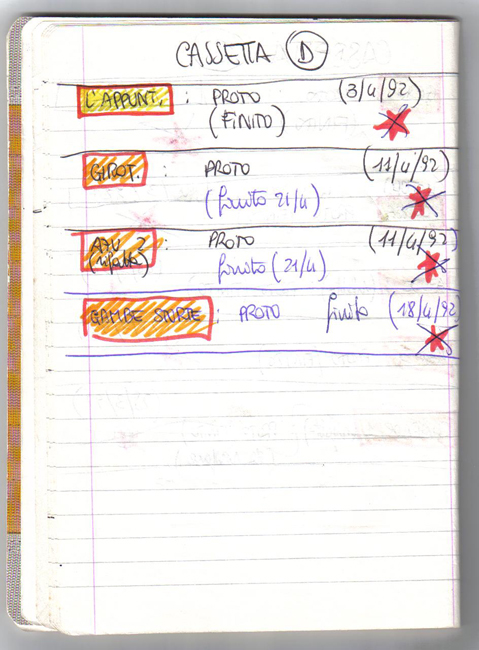 CASSETTA D
L'APPUNT. : PROTO (3/4/92)
(FINITO)
GIROT. : PROTO (11/4/92)
(finito 21/4)
: PROTO (11/4/92)
(rifatto) finito (21/4)
GAMBE STORTE : PROTO finito (18/4/92)